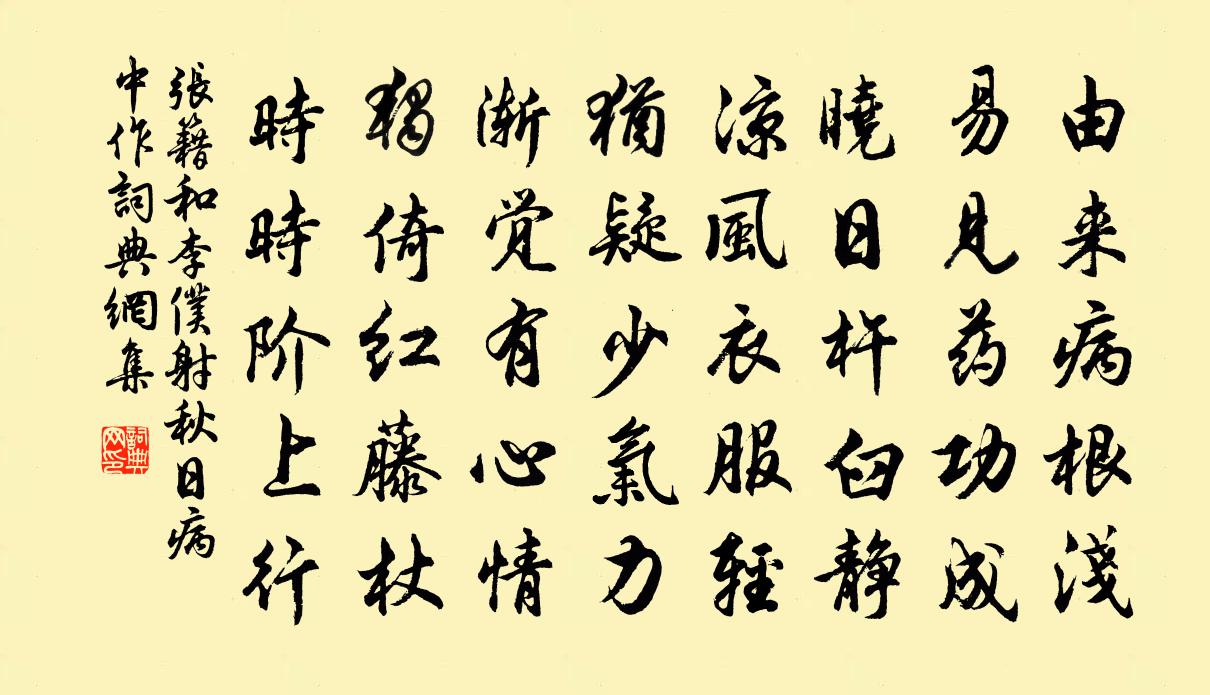 由来病根淺
易見药功成
曉日杵臼静
凉風衣服輕
猶疑少氣力
渐觉有心情
獨倚红藤杖
時時阶上行
張籍和李僕射秋日病
中作詞典網集
詞典
网印